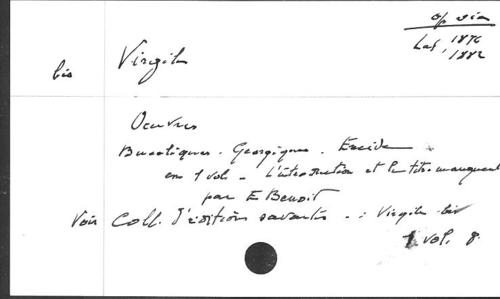 op. via
Lat, 1876
1882
bis
Virgile
Oeuvres
Bucoliques. Georgiques. Eneide
en 1 vol - l'introduction et le titre manquent
par E Benoit
Voir Coll. d'éditions savantes .: Virgile bis
1 vol. 8.